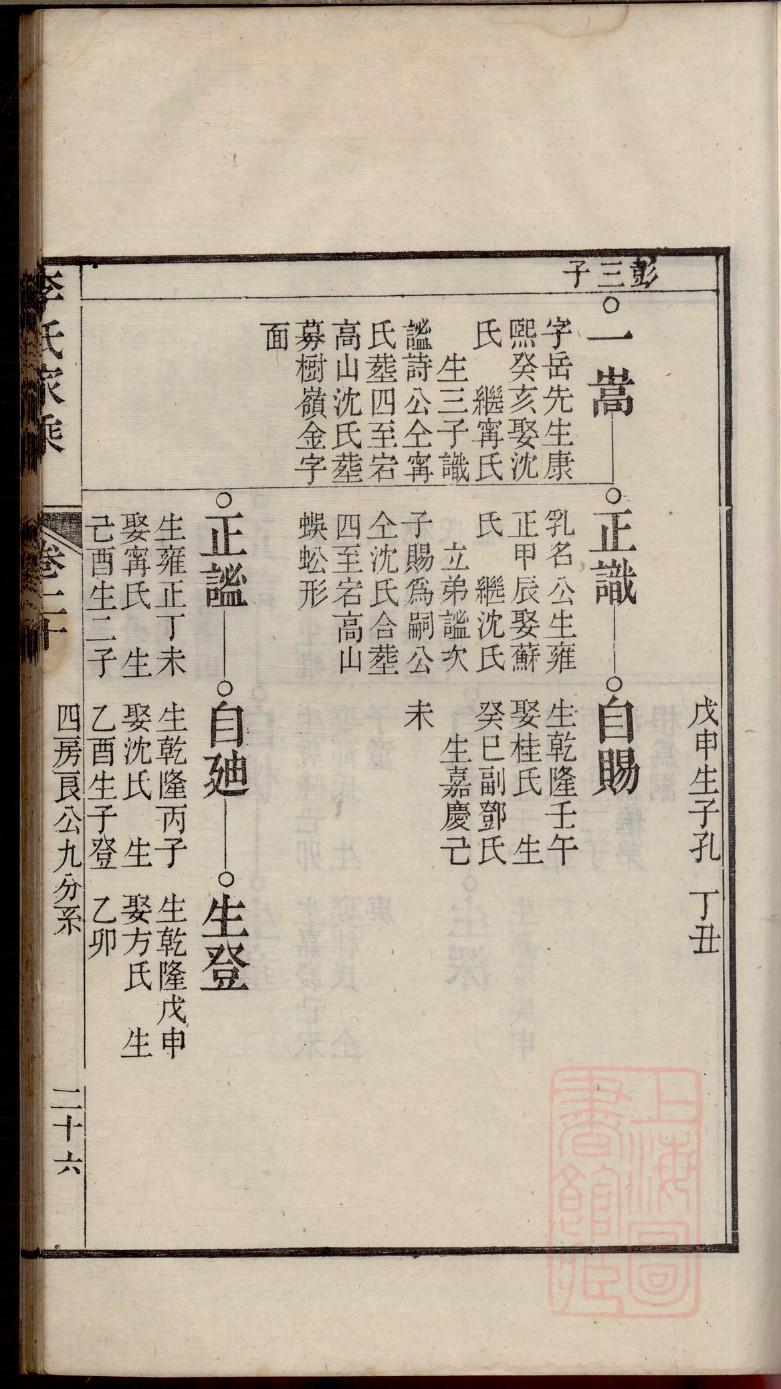 彭三子
戊申生子孔 丁丑
一嵩
字岳先生康
熙癸亥娶沈
氏 繼甯氏
生三子識
謐詩公仝甯
氏塟四至宕
高山沈氏塟
募樹嶺金字
面
正識
乳名公生雍
正甲辰娶蘇
氏 繼沈氏
立弟謐次
子賜爲嗣公
仝沈氏合塟
四至宕高山
蜈蚣形
自賜
生乾隆壬午
娶桂氏 生
癸巳副鄧氏
生嘉慶己
未
正謐
生雍正丁未
娶甯氏 生
己酉生二子
自廸
生乾隆丙子
娶沈氏 生
乙酉生子登
生登
生乾隆戊申
娶方氏 生
乙卯
李氏家乘
卷二十
四房良公九分系
二十六
上海圖書館藏